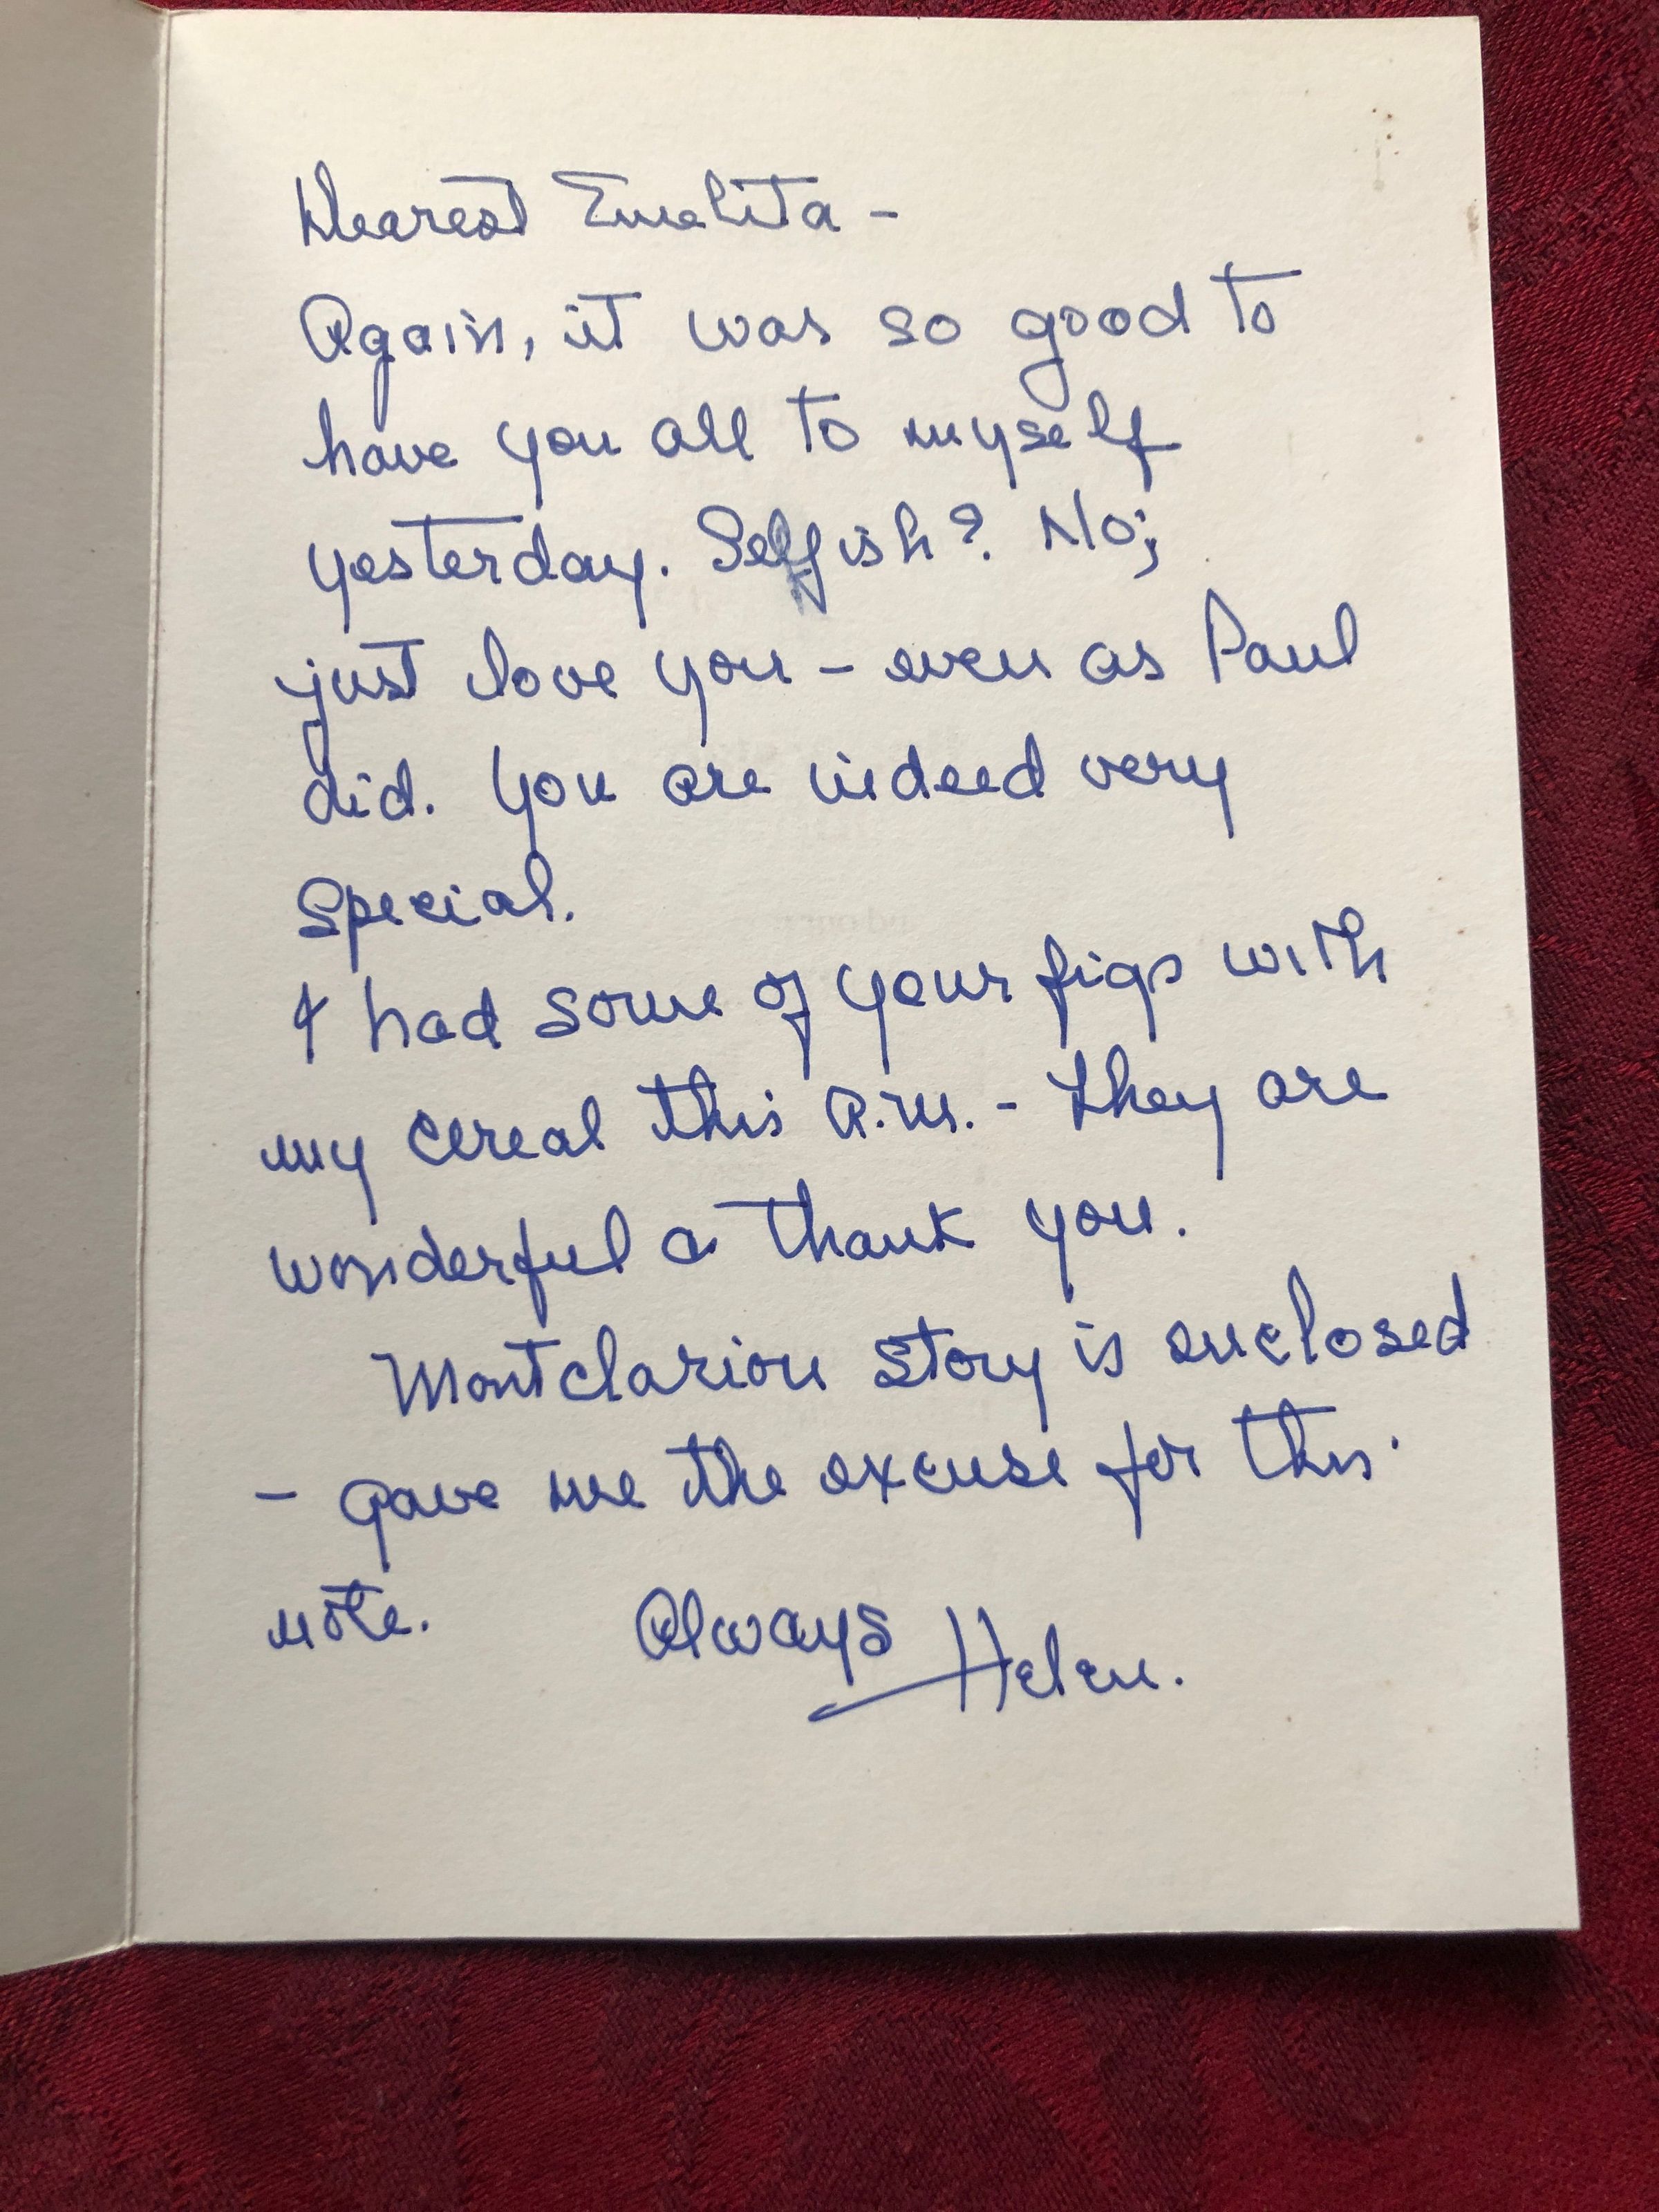 Dearest Emelita -
Again, it was so good to
have you all to myself
yesterday. Selfish? No;
just love you - even as Paul
did. You are indeed very
special.
I had some of your figs with
my cereal this A.M. - They are
wonderful a thank you.
Montclarion story is enclosed
- gave me the excuse for this
note. Always
Helen.